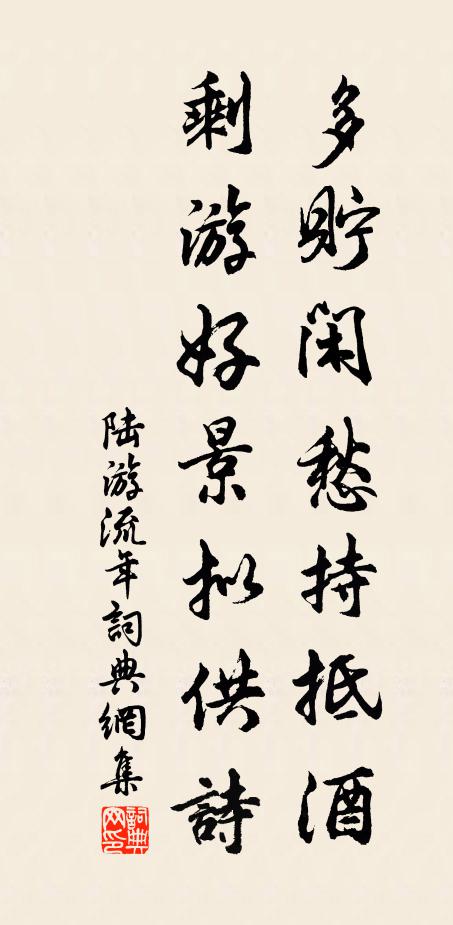 多貯閑愁持抵酒
剩游好景拟供詩
陆游流年詞典網集
詞典網印